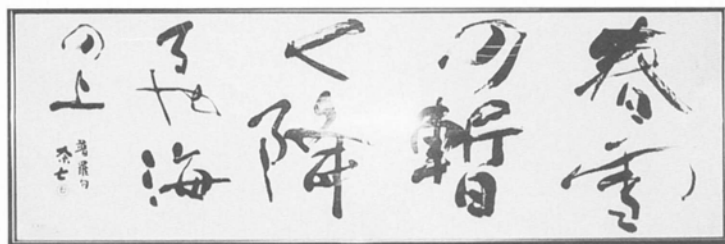 春雪
の暫
く降
るや海
の上
普羅句